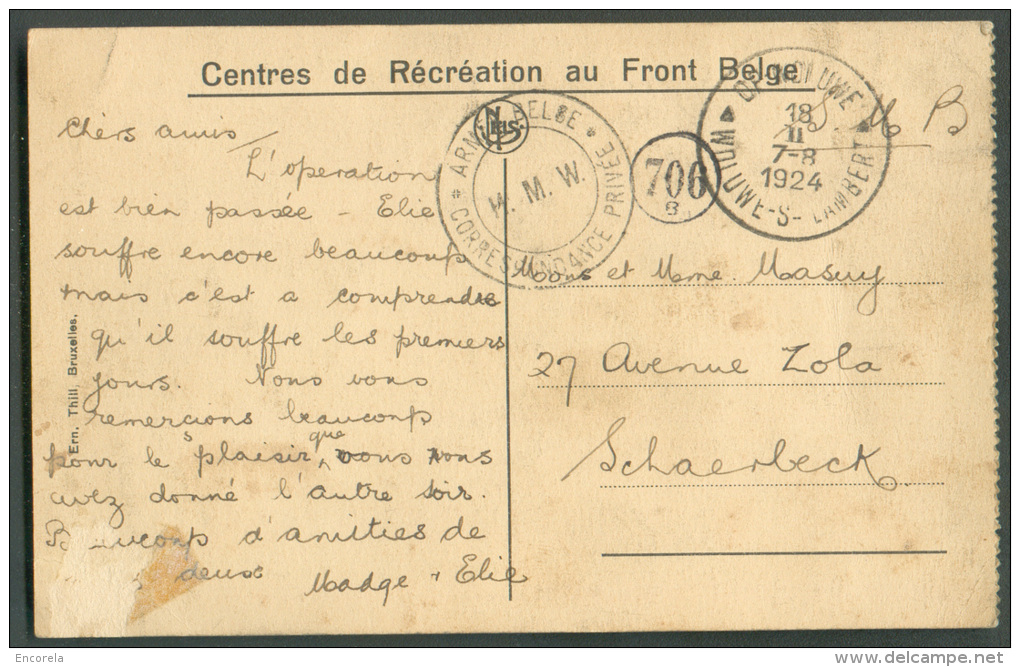 Centres de Récréation au Front Belge
S M B
Chers amis
L'operation
est bien passée - Elie
souffre encore beaucoup
mais c'est a comprendre
qu'il souffre les premiers
jours. Nous vous
remercions beaucoup
pour les plaisir que vous nous
avez donné l'autre soir.
Beaucoup d'amities de
deux
Madge & Elie
Mons et Mme. Masuy
27 Avenue Zola
Schaerbeck
ARMÉE BELGE
CORRESPONDANCE PRIVÉE
H. M. W.
NELS
706
8
OP-WOLUWE
WOLUWE-S-LAMBERT
18
II
7-8
1924
Ern. Thill, Bruxelles.
Encorela
www.delcampe.net